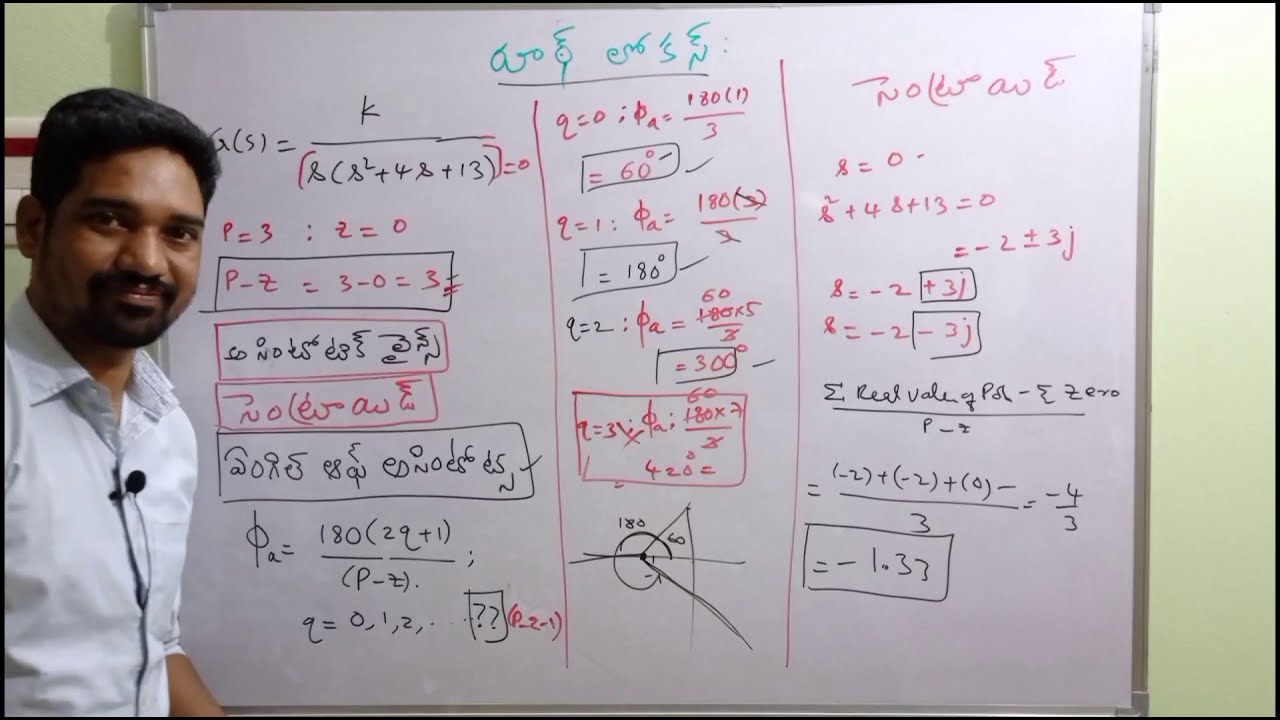 రూట్ లోకస్ :
G(s) = K / s(s²+4s+13) = 0
P=3 : z=0
P-z = 3-0 = 3
అసింటోటిక్ లైన్స్
సెంట్రాయిడ్
ఏంగిల్ ఆఫ్ అసింటోట్స్
ϕa = 180(2q+1) / (P-z). ;
q = 0,1,2,.... ?? (P-z-1)
q=0 : ϕa = 180(1) / 3
= 60°
q=1 : ϕa = 180(3) / 3
= 180°
60
q=2 : ϕa = 180×5 / 3
= 300°
60
q=3 : ϕa : 180×7 / 3
420° =
180
60
సెంట్రాయిడ్
s = 0
s²+4s+13=0
= -2 ± 3j
s = -2 +3j
s = -2 -3j
Σ Real Value of Pole - Σ Zero / P-z
= (-2)+(-2)+(0)- / 3 = -4/3
= -1.33